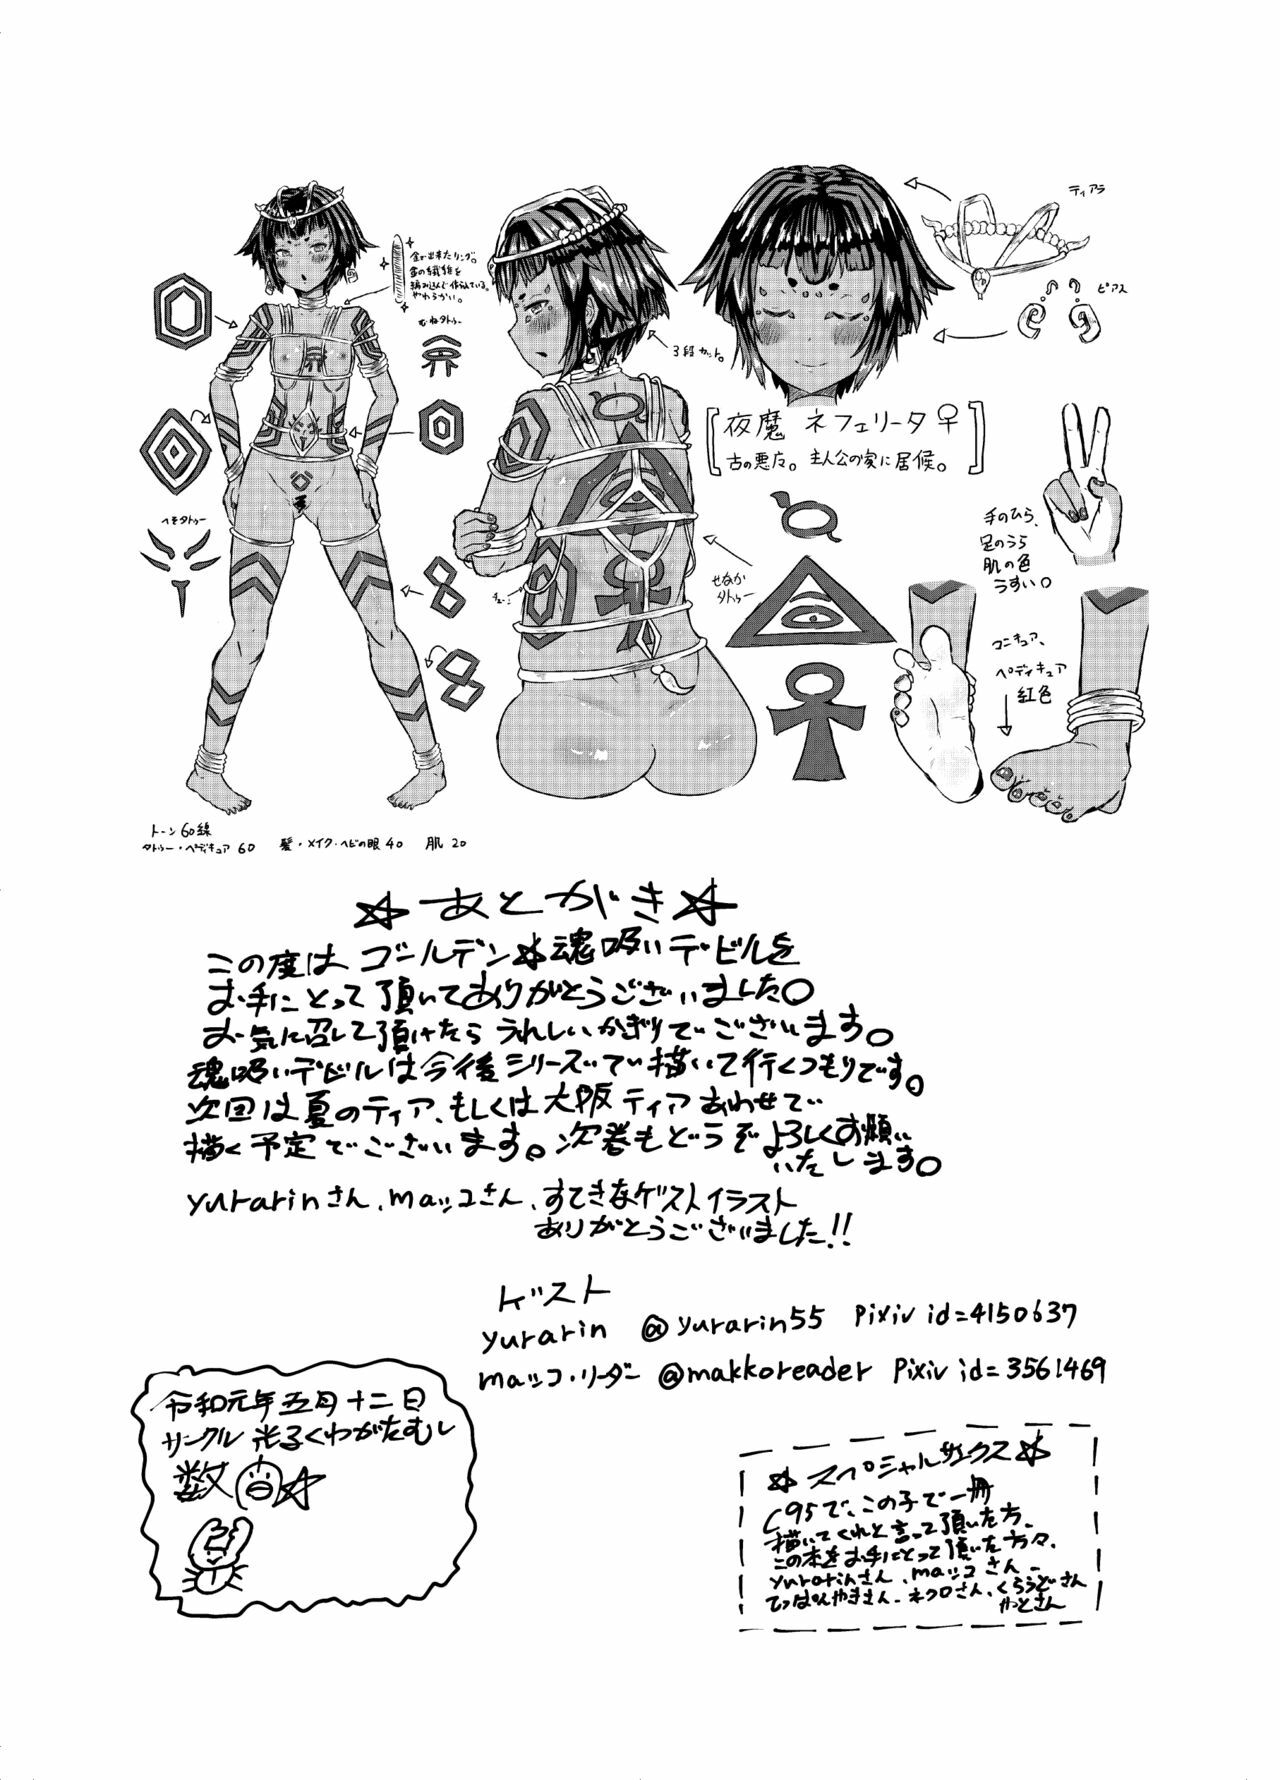 ティアラ
金で出来たリング。
やわらかい。
むねタトゥー
ピアス
3段カット。
夜魔 ネフェリータ♀
古の悪魔。主人公の家に居候。
ヘそタトゥー
手のひら、
足のうら
肌の色
うすい。
せなか
タトゥー
ペディキュア
紅色
トーン60線
タトゥー・ペディキュア 60 髪・メイク・ヘビの眼 40 肌 20
☆あとがき☆
この度は ゴールデン☆魂吸いデビルを
お手にとって頂いてありがとうございました。
お気に召して頂けたら うれしいかぎりでございます。
魂吸いデビルは今後シリーズで描いて行くつもりです。
次回は夏のティア、もしくは大阪ティアあわせで
描く予定でございます。次巻もどうぞよろしくお願い
いたします。
yurarinさん、maッコさん、すてきなゲストイラスト
ありがとうございました!!
ゲスト
yurarin @yurarin55 Pixiv id=4150637
maッコ・リーダー @makkoreader Pixiv id=3561469
令和元年五月十二日
サークル 光子くわがたむし
数
☆スペシャルサンクス☆
C95で、この子で一冊
描いてくれと言って頂いた方、
この本をお手にとって頂いた方々、
yurarinさん、maッコさん、
てっぱんやきさん、ネクロさん、くらうどさん
やとさん